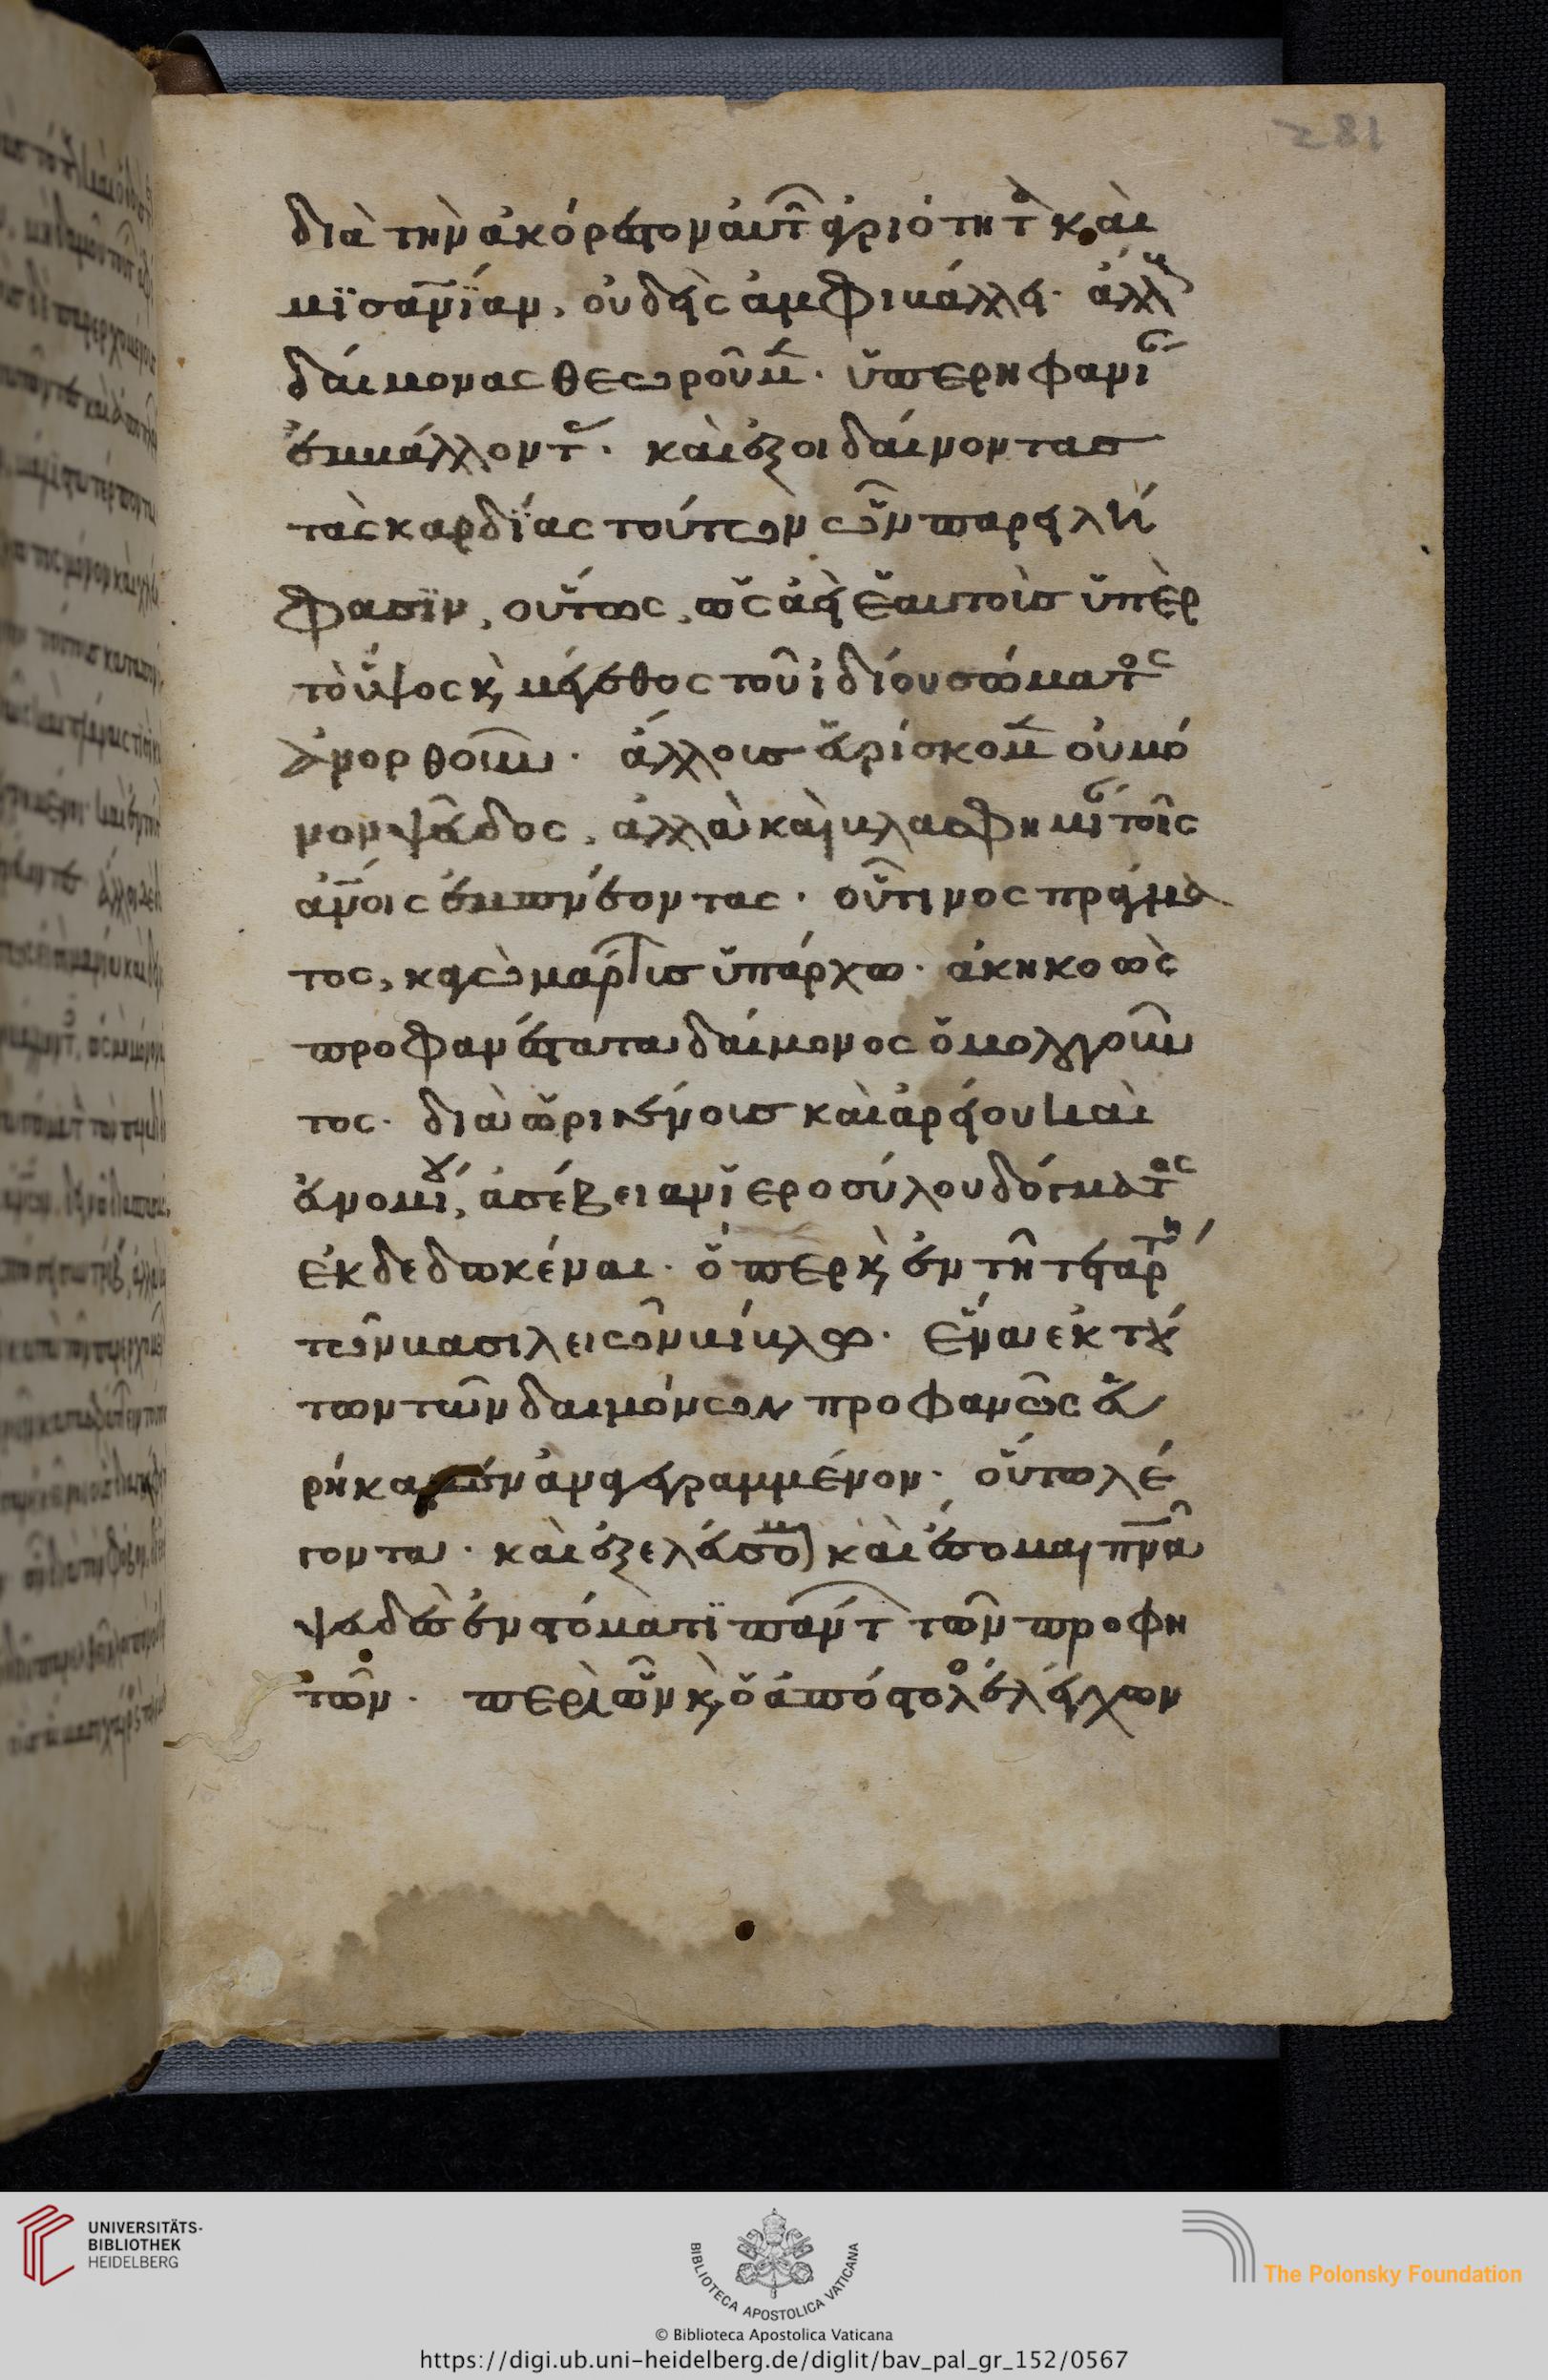 281
διὰ τὴν ἀκόρεστον αὐτ ἀγριότητ καὶ
μϊσανϊαν, οὐδεὶς ἀμφιβάλλει· ἀλλ
δαίμονας θεωροῦμ· ὑπερηφανι
ἐμβάλλοντ· καὶ ἐξοιδαίνοντας
τὰς καρδΐας τούτων ὧν παρειλή
φασϊν, οὕτως, ὡς ἀεὶ ἑαυτοῖς ὑπὲρ
τὸ ὕψος κ μέγεθος τοῦ ἰδίου σώματος
ἀνορθοῦν· ἄλλοις εὑρίσκομ οὐ μό
νον ψεῦδος, ἀλλὰ καὶ βλασφημι τοῖς
ἀνοις ἐμπνέοντας· οὗτινος πράγμα
τος, κἀγὼ μάρτις ὑπάρχω· ἀκηκοὼς
προφανέστατα δαίμονος ὁμολογοῦν
τος· διὰ ὠριγένους καὶ ἀρείου καὶ
εὐνομί, ἀσέβειαν ϊεροσύλου δόγματος
ἐκδεδωκέναι· ὅπερ κ ἐν τῆ τετάρτη
τῶν βασιλειῶν βίβλω· ἕνα ἐκ τού
των τῶν δαιμόνων προφανῶς εὑ
ρήκαμεν ἀναγεγραμμένον· οὕτω λέ
γοντα· καὶ ἐξελεύσομ καὶ ἔσομαι πνα
ψευδὲς ἐν στόματϊ πάντ τῶν προφη
τῶν· περὶ ὧν κ ὁ ἀπόστολο ἐλέγχων
UNIVERSITÄTS-
BIBLIOTHEK
HEIDELBERG
BIBLIOTECA APOSTOLICA VATICANA
The Polonsky Foundation
© Biblioteca Apostolica Vaticana
https://digi.ub.uni-heidelberg.de/diglit/bav_pal_gr_152/0567